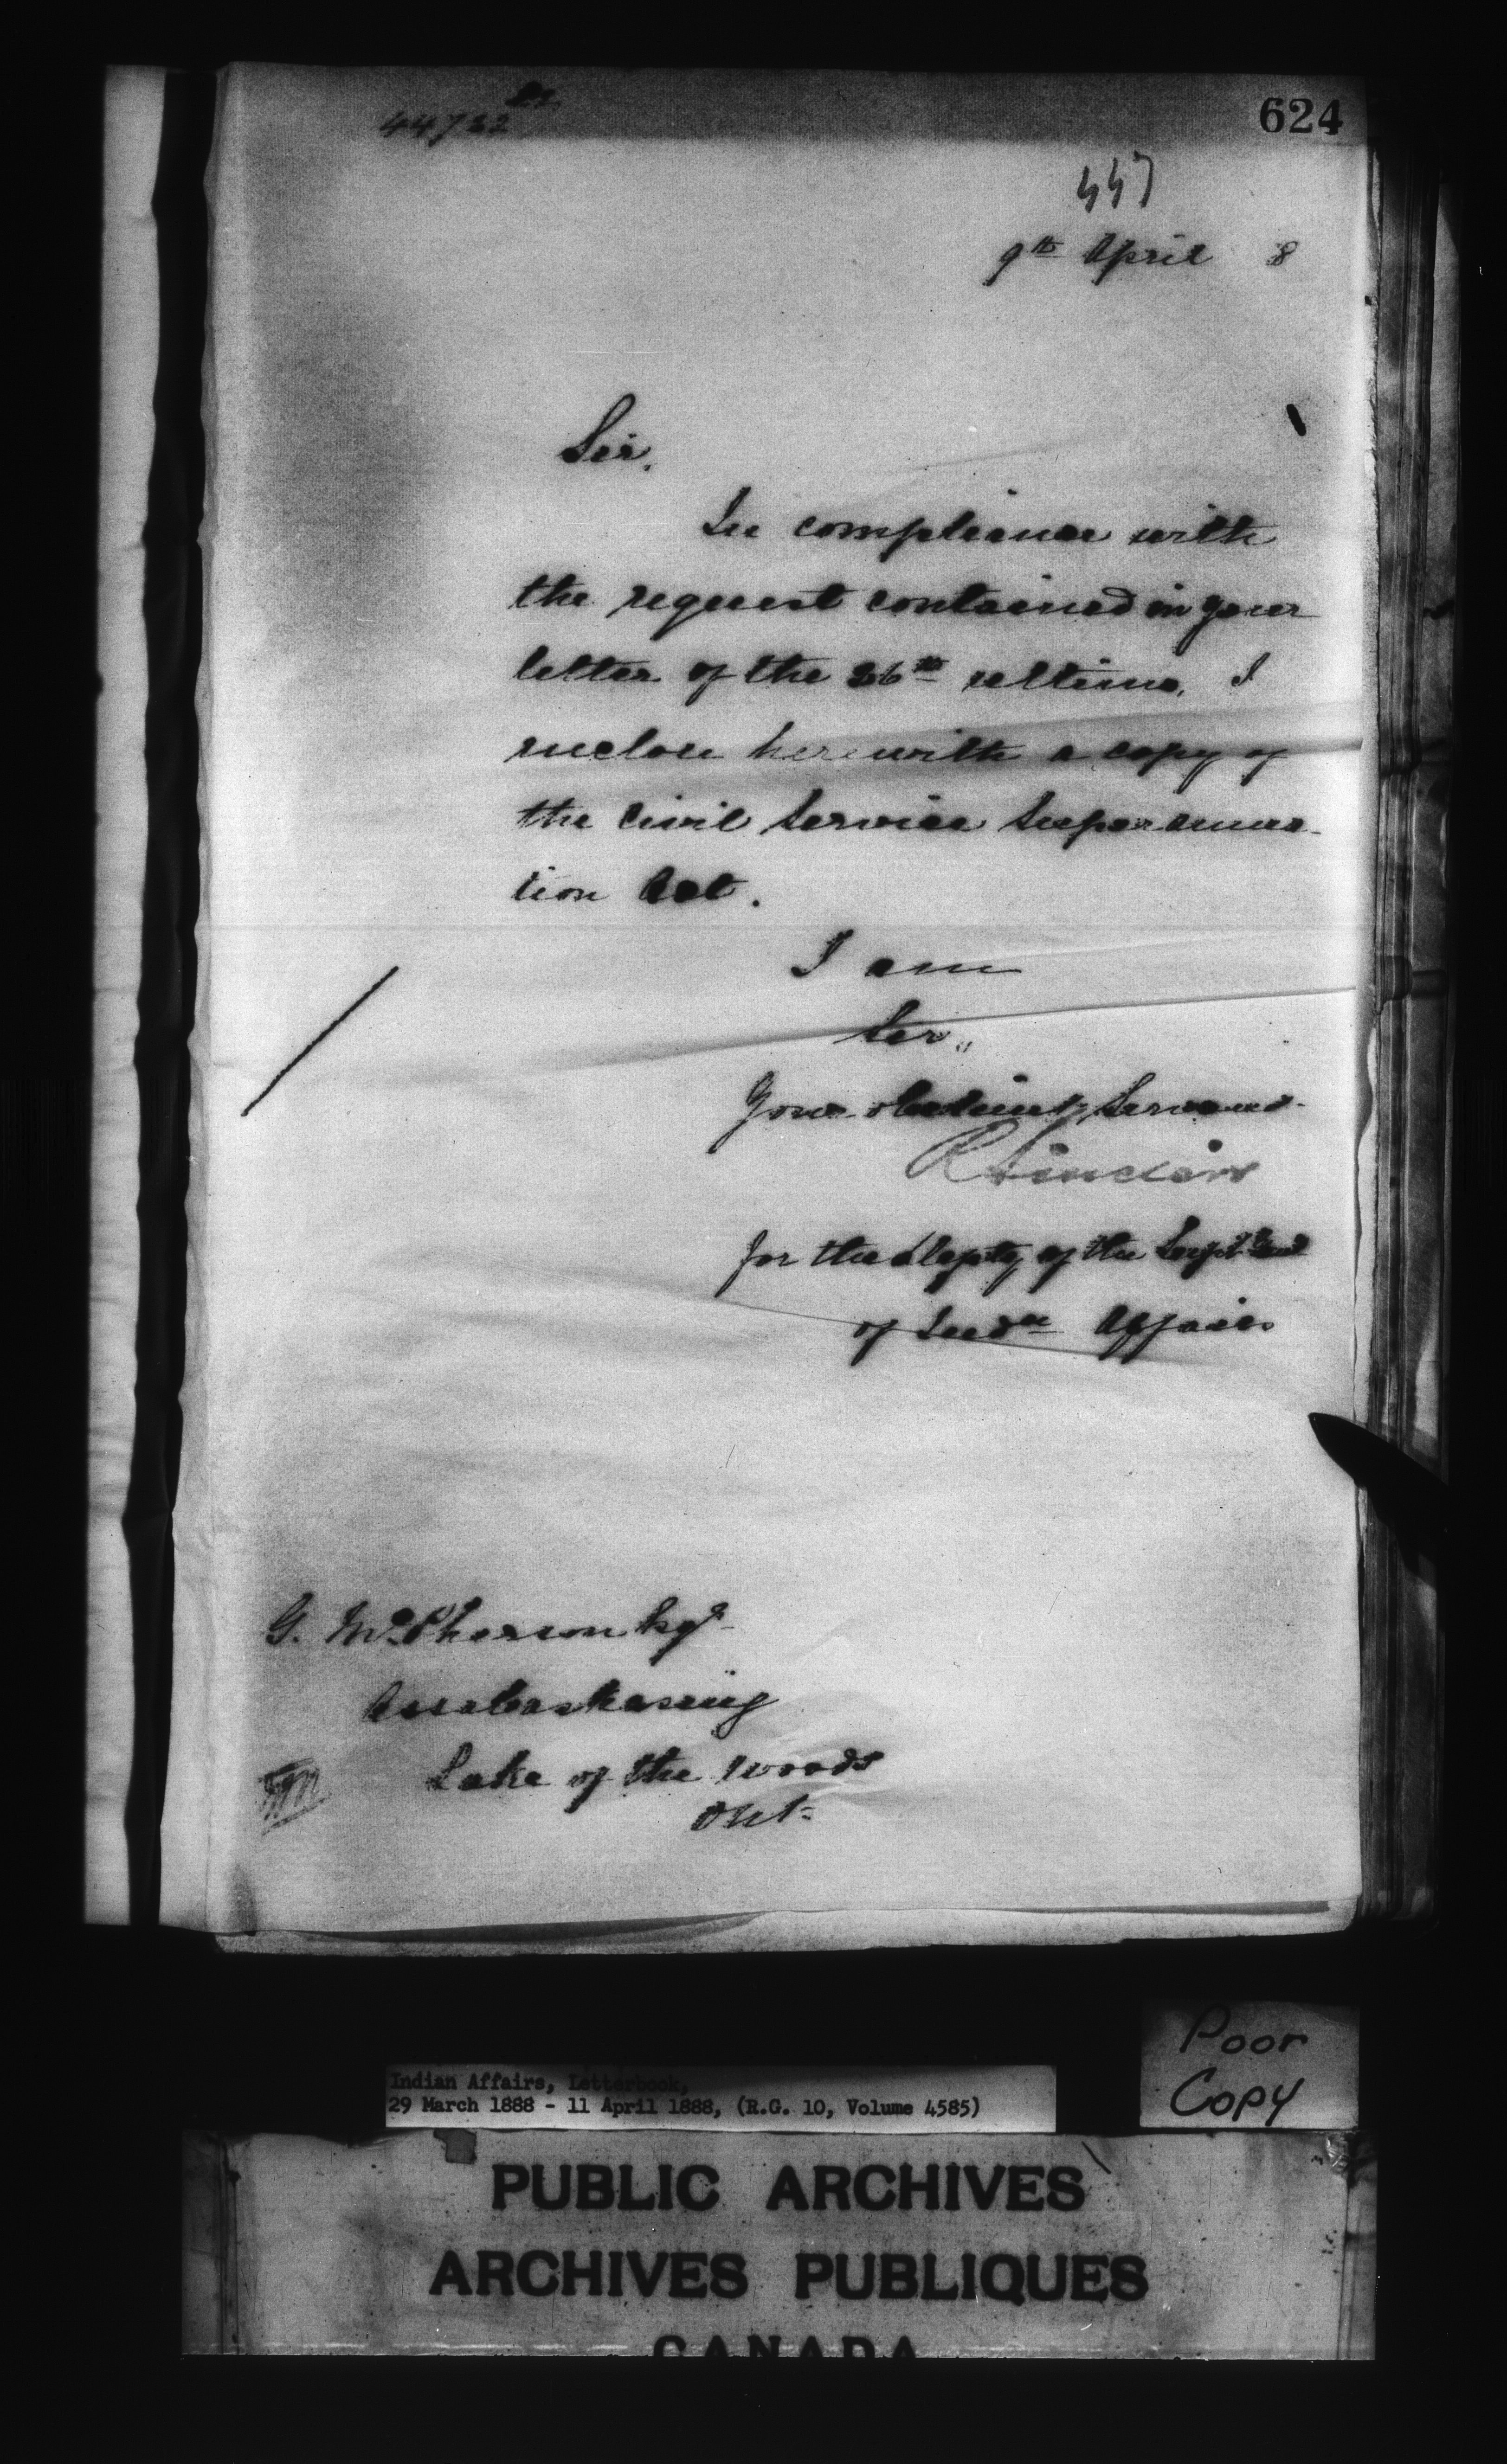 624
44722
447
9th April 8
Sir,
In compliance with
the request contained in your
letter of the 26th ultimo, I
enclose herewith a copy of
the Civil Service Superannua-
tion Act.
I am
Sir,
Your obedient Servant
R Sinclair
for the Depty of the Supt Genl
of Indn Affairs
G. McPherson Esqr
Assabaskasing
Lake of the Woods
Ont.
Poor
Copy
Indian Affairs, Letterbook,
29 March 1888 - 11 April 1888, (R.G. 10, Volume 4585)
PUBLIC ARCHIVES
ARCHIVES PUBLIQUES
CANADA